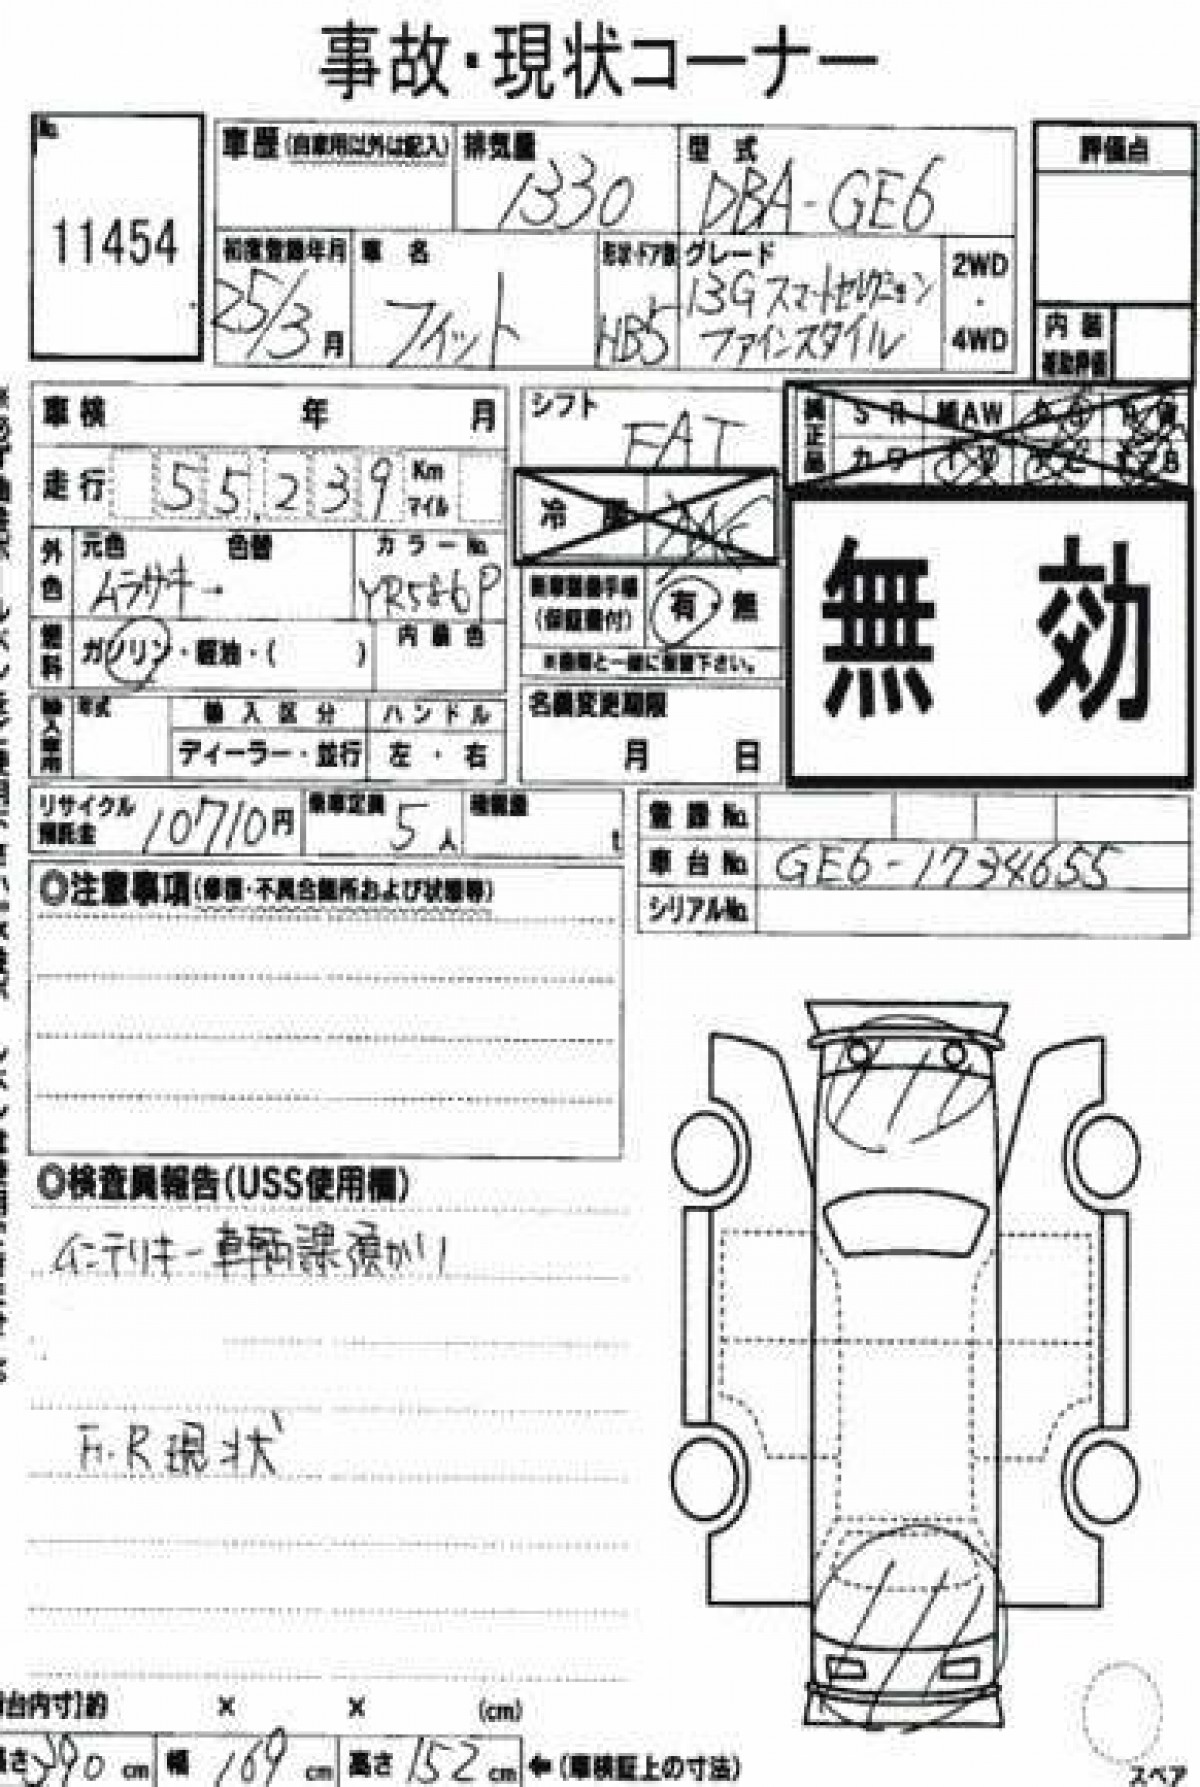 事故・現状コーナー
No.
11454
車歴(自家用以外は記入)
排気量
1330
型式
DBA-GE6
評価点
初度登録年月
25/3月
車名
フィット
形状・ドア数
HB5
グレード
13Gスマートセレクション
ファインスタイル
2WD
・
4WD
内装
補助評価
車検 年 月
シフト
FAT
純正品
SR 純AW
カワ
走行 55,239 Km マイル
冷房
外色
元色 色替
ムラサキ→
カラーNo.
YR586P
新車整備手帳
(保証書付)
有・無
※書類と一緒に保管下さい。
無効
燃料
ガソリン・軽油・( )
内装色
輸入車用
年式
輸入区分
ディーラー・並行
ハンドル
左・右
名義変更期限
月 日
リサイクル
預託金
10710円
乗車定員
5人
積載量
t
登録No.
車台No. GE6-1734655
シリアルNo.
◎注意事項(修復・不具合箇所および状態等)
◎検査員報告(USS使用欄)
インテリキー車輌課預かり
F・R現状
台内寸]約 × × (cm)
長さ390cm 幅169cm 高さ152cm ←(車検証上の寸法)
スペア